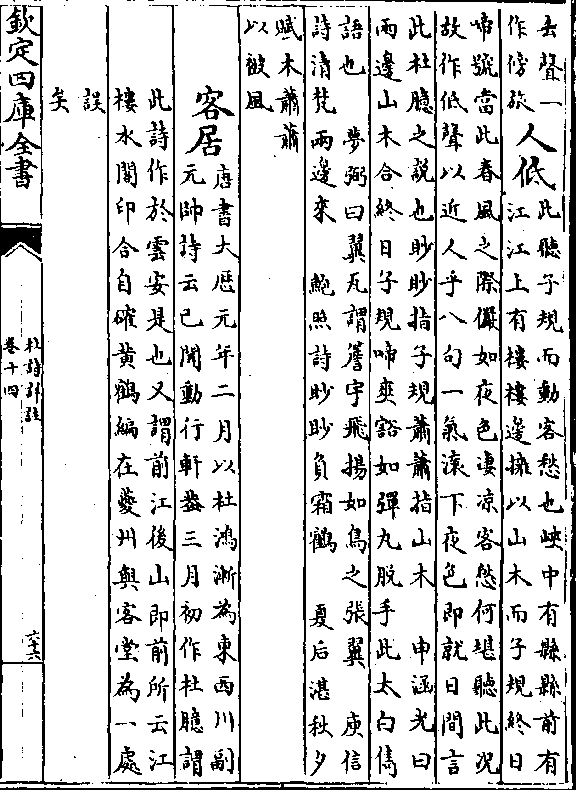 去聲一
作傍旅
人低
此聽子規而動客愁也峽中有縣縣前有
江江上有樓樓邊擁以山木而子規終日
啼號當此春風之際儼如夜色凄凉客愁何堪聽此況
故作低聲以近人乎八句一氣滚下夜色即就日間言
此杜臆之説也眇眇指子規蕭蕭指山木 申涵光曰
兩邊山木合終日子規啼爽豁如彈丸脱手此太白儁
語也 夢弼曰翼瓦謂簷宇飛揚如鳥之張翼 庾信
詩清梵兩邊來 鮑照詩眇眇負霜鶴 夏后湛秋夕
賦木蕭蕭
以被風
客居
唐書大厯元年二月以杜鴻漸為東西川副
元帥詩云已聞動行軒葢三月初作杜臆謂
此詩作於雲安是也又謂前江後山即前所云江
樓水閣印合自確黄鶴編在夔州與客堂為一處
誤
矣
欽定四庫全書
杜詩詳註
卷十四
六十六